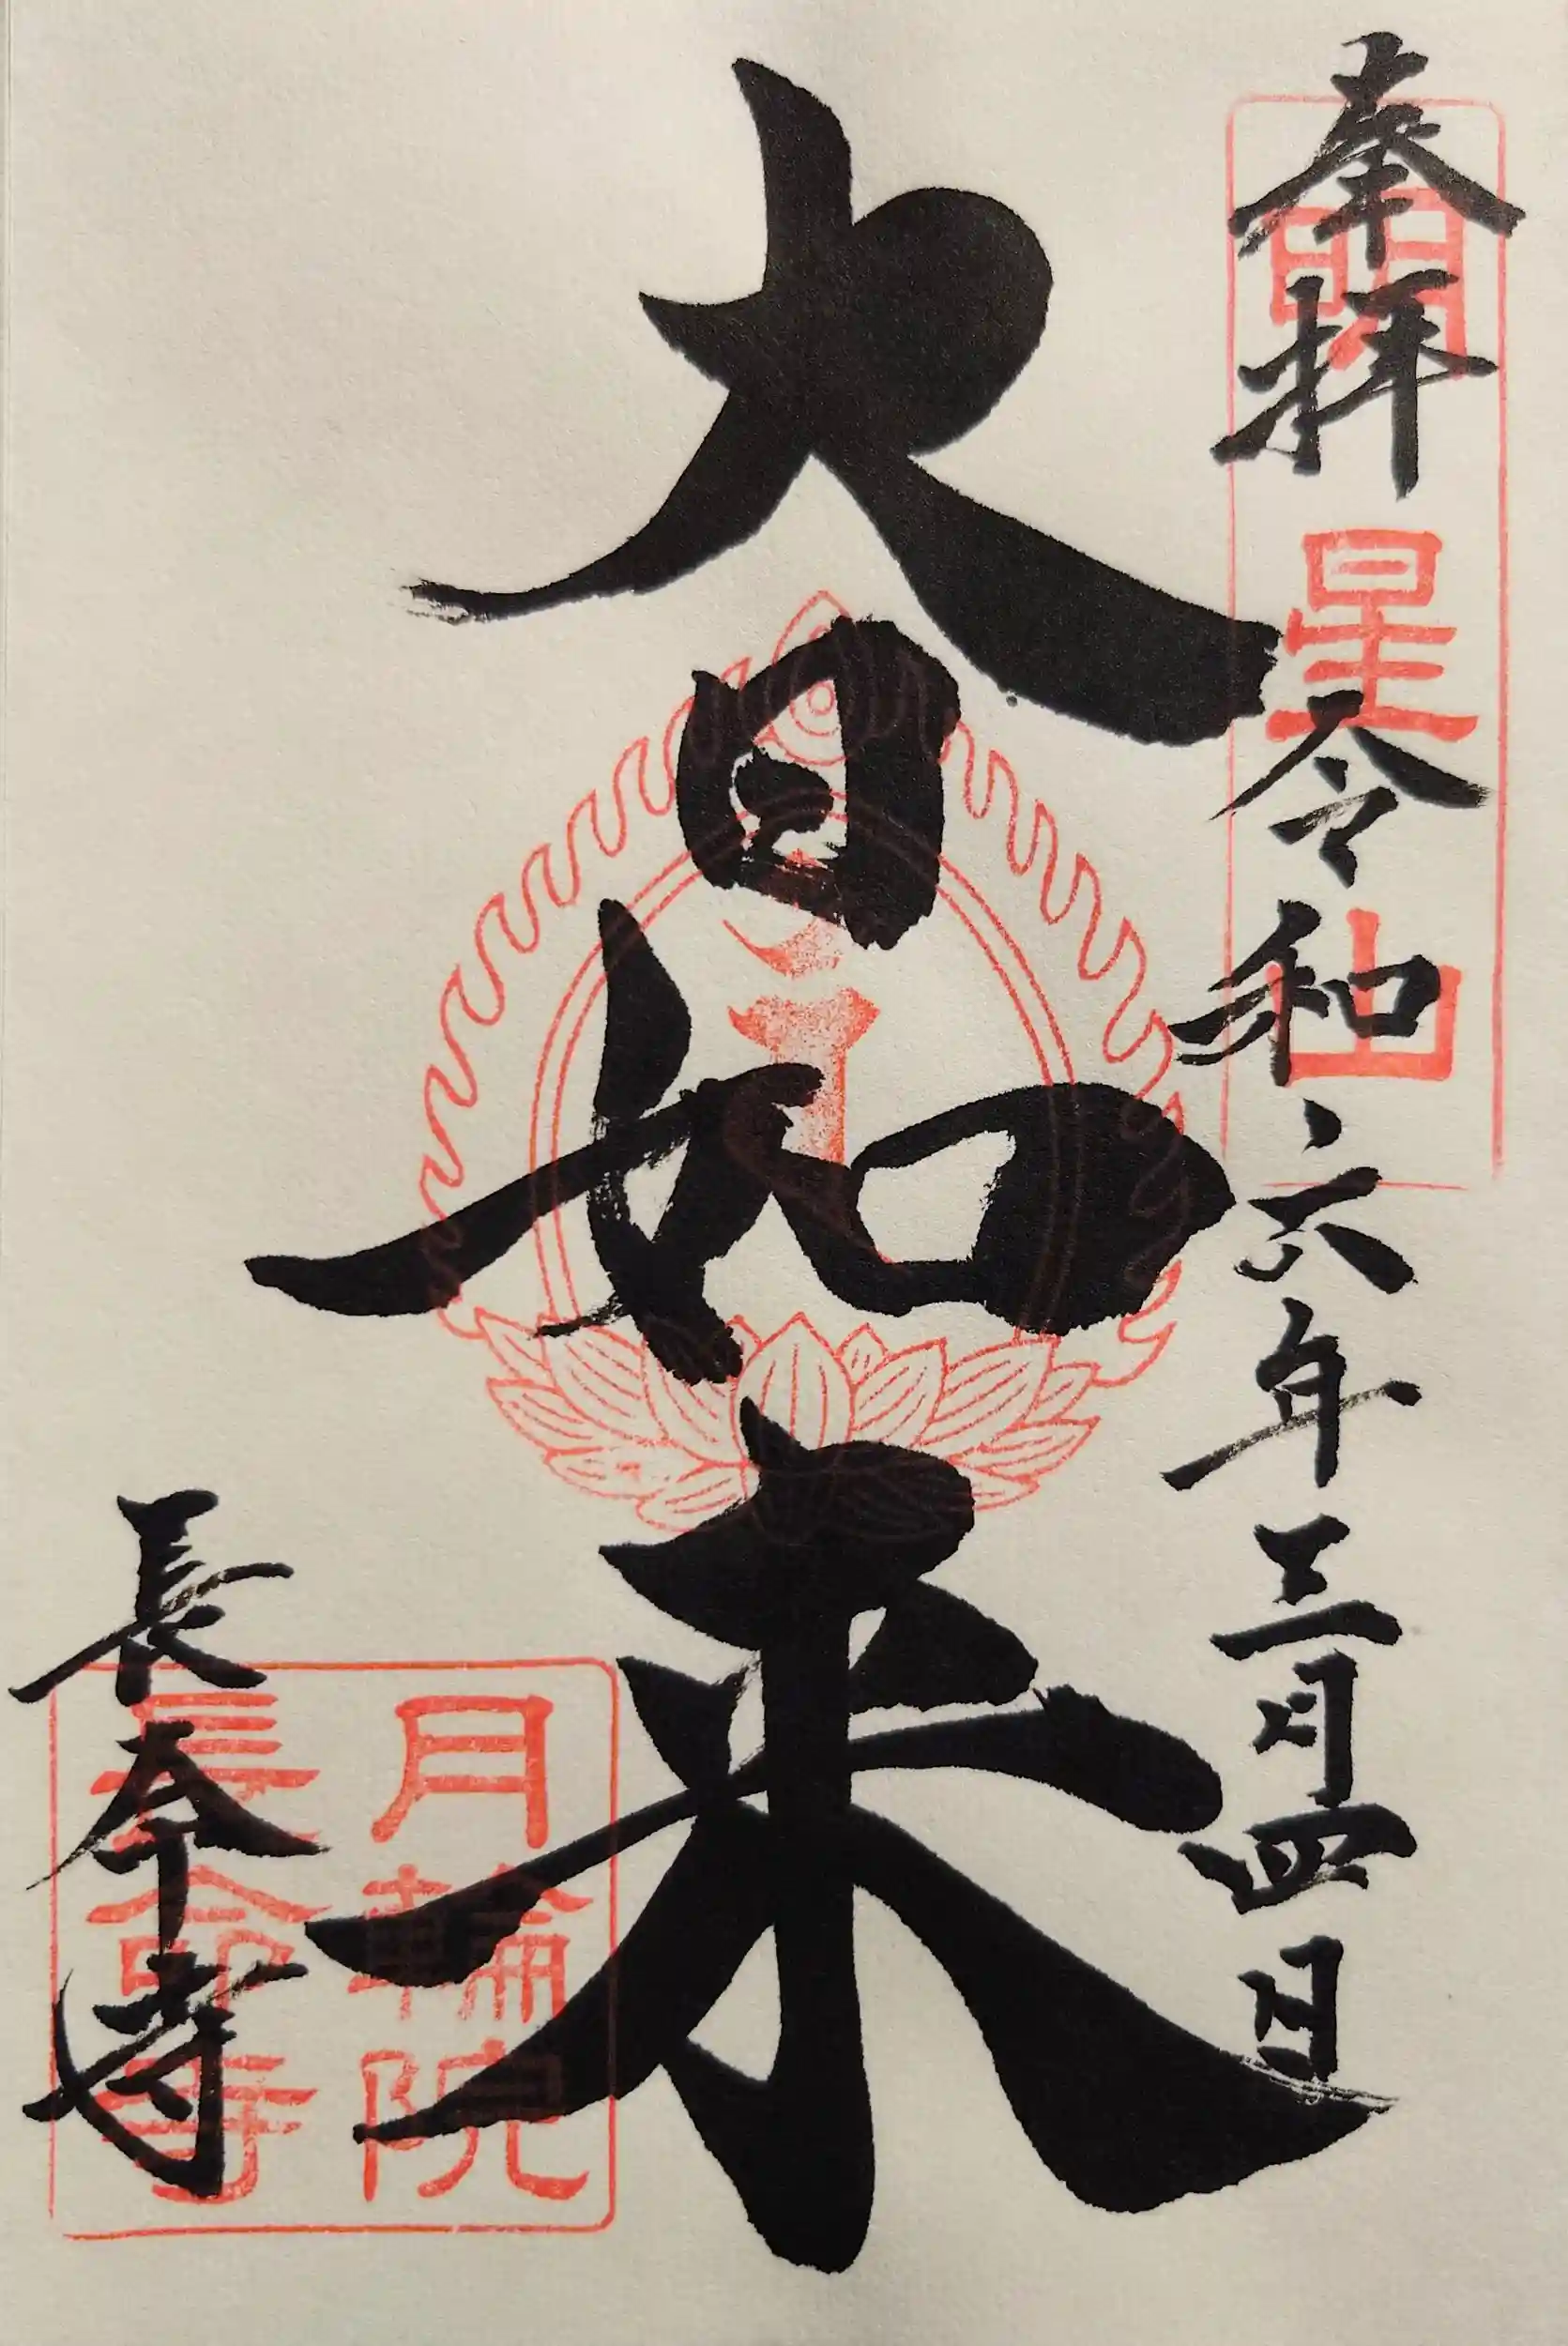 奉拝 令和六年三月四日
明星山
大日如来
長命寺
月輪院
長命寺